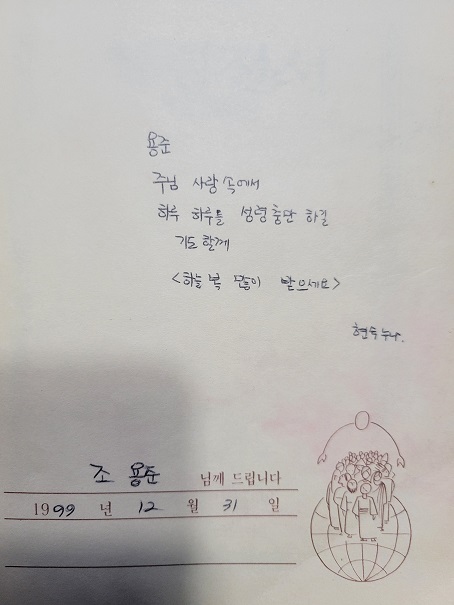 용준
주님 사랑 속에서
하루 하루를 성령충만 하길
기도할께
<하늘 복 많이 받으세요>
현숙누나.
조 용준 님께 드립니다
1999 년 12 월 31 일